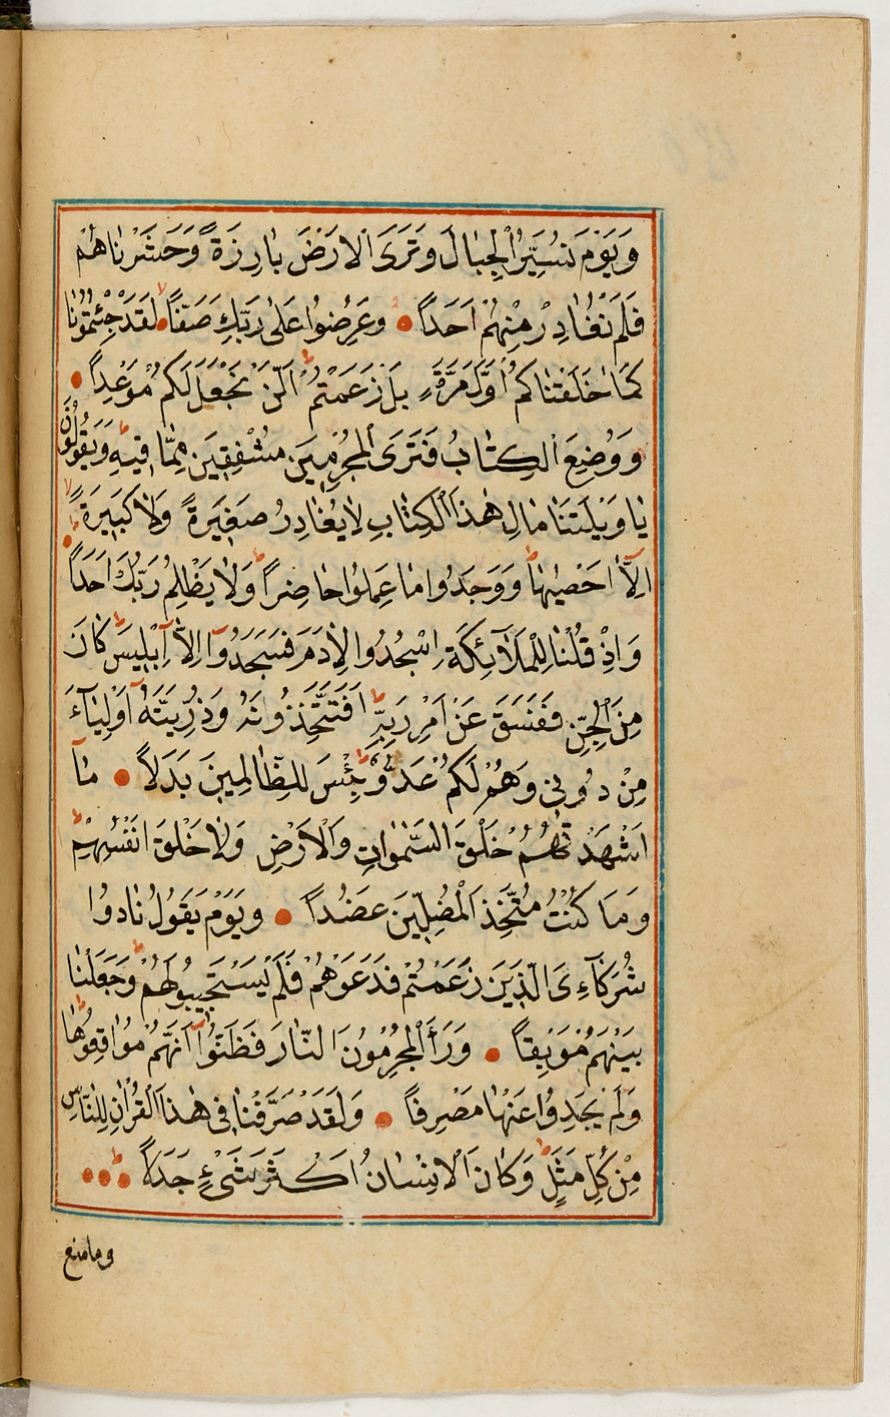 وَيَوْمَ نُسَيِّرُ الْجِبَالَ وَتَرَى الْاَرْضَ بَارِزَةً وَحَشَرْنَاهُمْ
فَلَمْ نُغَادِرْ مِنْهُمْ اَحَدًا وَعُرِضُوا عَلٰى رَبِّكَ صَفًّا لَقَدْ جِئْتُمُونَا
كَمَا خَلَقْنَاكُمْ اَوَّلَ مَرَّةٍ بَلْ زَعَمْتُمْ اَلَّنْ نَجْعَلَ لَكُمْ مَوْعِدًا
وَوُضِعَ الْكِتَابُ فَتَرَى الْمُجْرِمِينَ مُشْفِقِينَ مِمَّا فِيهِ وَيَقُولُونَ
يَا وَيْلَتَنَا مَالِ هٰذَا الْكِتَابِ لَا يُغَادِرُ صَغِيرَةً وَلَا كَبِيرَةً
اِلَّا اَحْصٰيهَا وَوَجَدُوا مَا عَمِلُوا حَاضِرًا وَلَا يَظْلِمُ رَبُّكَ اَحَدًا
وَاِذْ قُلْنَا لِلْمَلٰٓئِكَةِ اسْجُدُوا لِاٰدَمَ فَسَجَدُٓوا اِلَّٓا اِبْلِيسَ كَانَ
مِنَ الْجِنِّ فَفَسَقَ عَنْ اَمْرِ رَبِّهِ اَفَتَتَّخِذُونَهُ وَذُرِّيَّتَهُٓ اَوْلِيَٓاءَ
مِنْ دُونِي وَهُمْ لَكُمْ عَدُوٌّ بِئْسَ لِلظَّالِمِينَ بَدَلًا مَٓا
اَشْهَدْتُهُمْ خَلْقَ السَّمٰوَاتِ وَالْاَرْضِ وَلَا خَلْقَ اَنْفُسِهِمْ
وَمَا كُنْتُ مُتَّخِذَ الْمُضِلِّينَ عَضُدًا وَيَوْمَ يَقُولُ نَادُوا
شُرَكَٓاءِىَ الَّذِينَ زَعَمْتُمْ فَدَعَوْهُمْ فَلَمْ يَسْتَجِيبُوا لَهُمْ وَجَعَلْنَا
بَيْنَهُمْ مَوْبِقًا وَرَاَ الْمُجْرِمُونَ النَّارَ فَظَنُّٓوا اَنَّهُمْ مُوَاقِعُوهَا
وَلَمْ يَجِدُوا عَنْهَا مَصْرِفًا وَلَقَدْ صَرَّفْنَا فِى هٰذَا الْقُرْاٰنِ لِلنَّاسِ
مِنْ كُلِّ مَثَلٍ وَكَانَ الْاِنْسَانُ اَكْثَرَ شَىْءٍ جَدَلًا
وما منع